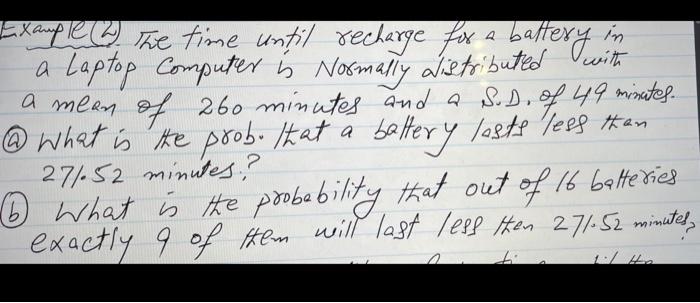 Example (2) The time until recharge for a battery in
a Laptop Computer is Normally distributed with
a mean of 260 minutes and a S.D. of 49 minutes.
(a) What is the prob. that a battery lasts less than
271.52 minutes?
(b) What is the probability that out of 16 batteries
exactly 9 of them will last less then 271.52 minutes?